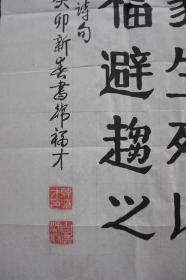 家生死以
福避趨之
诗句
癸卯新春書韩福才